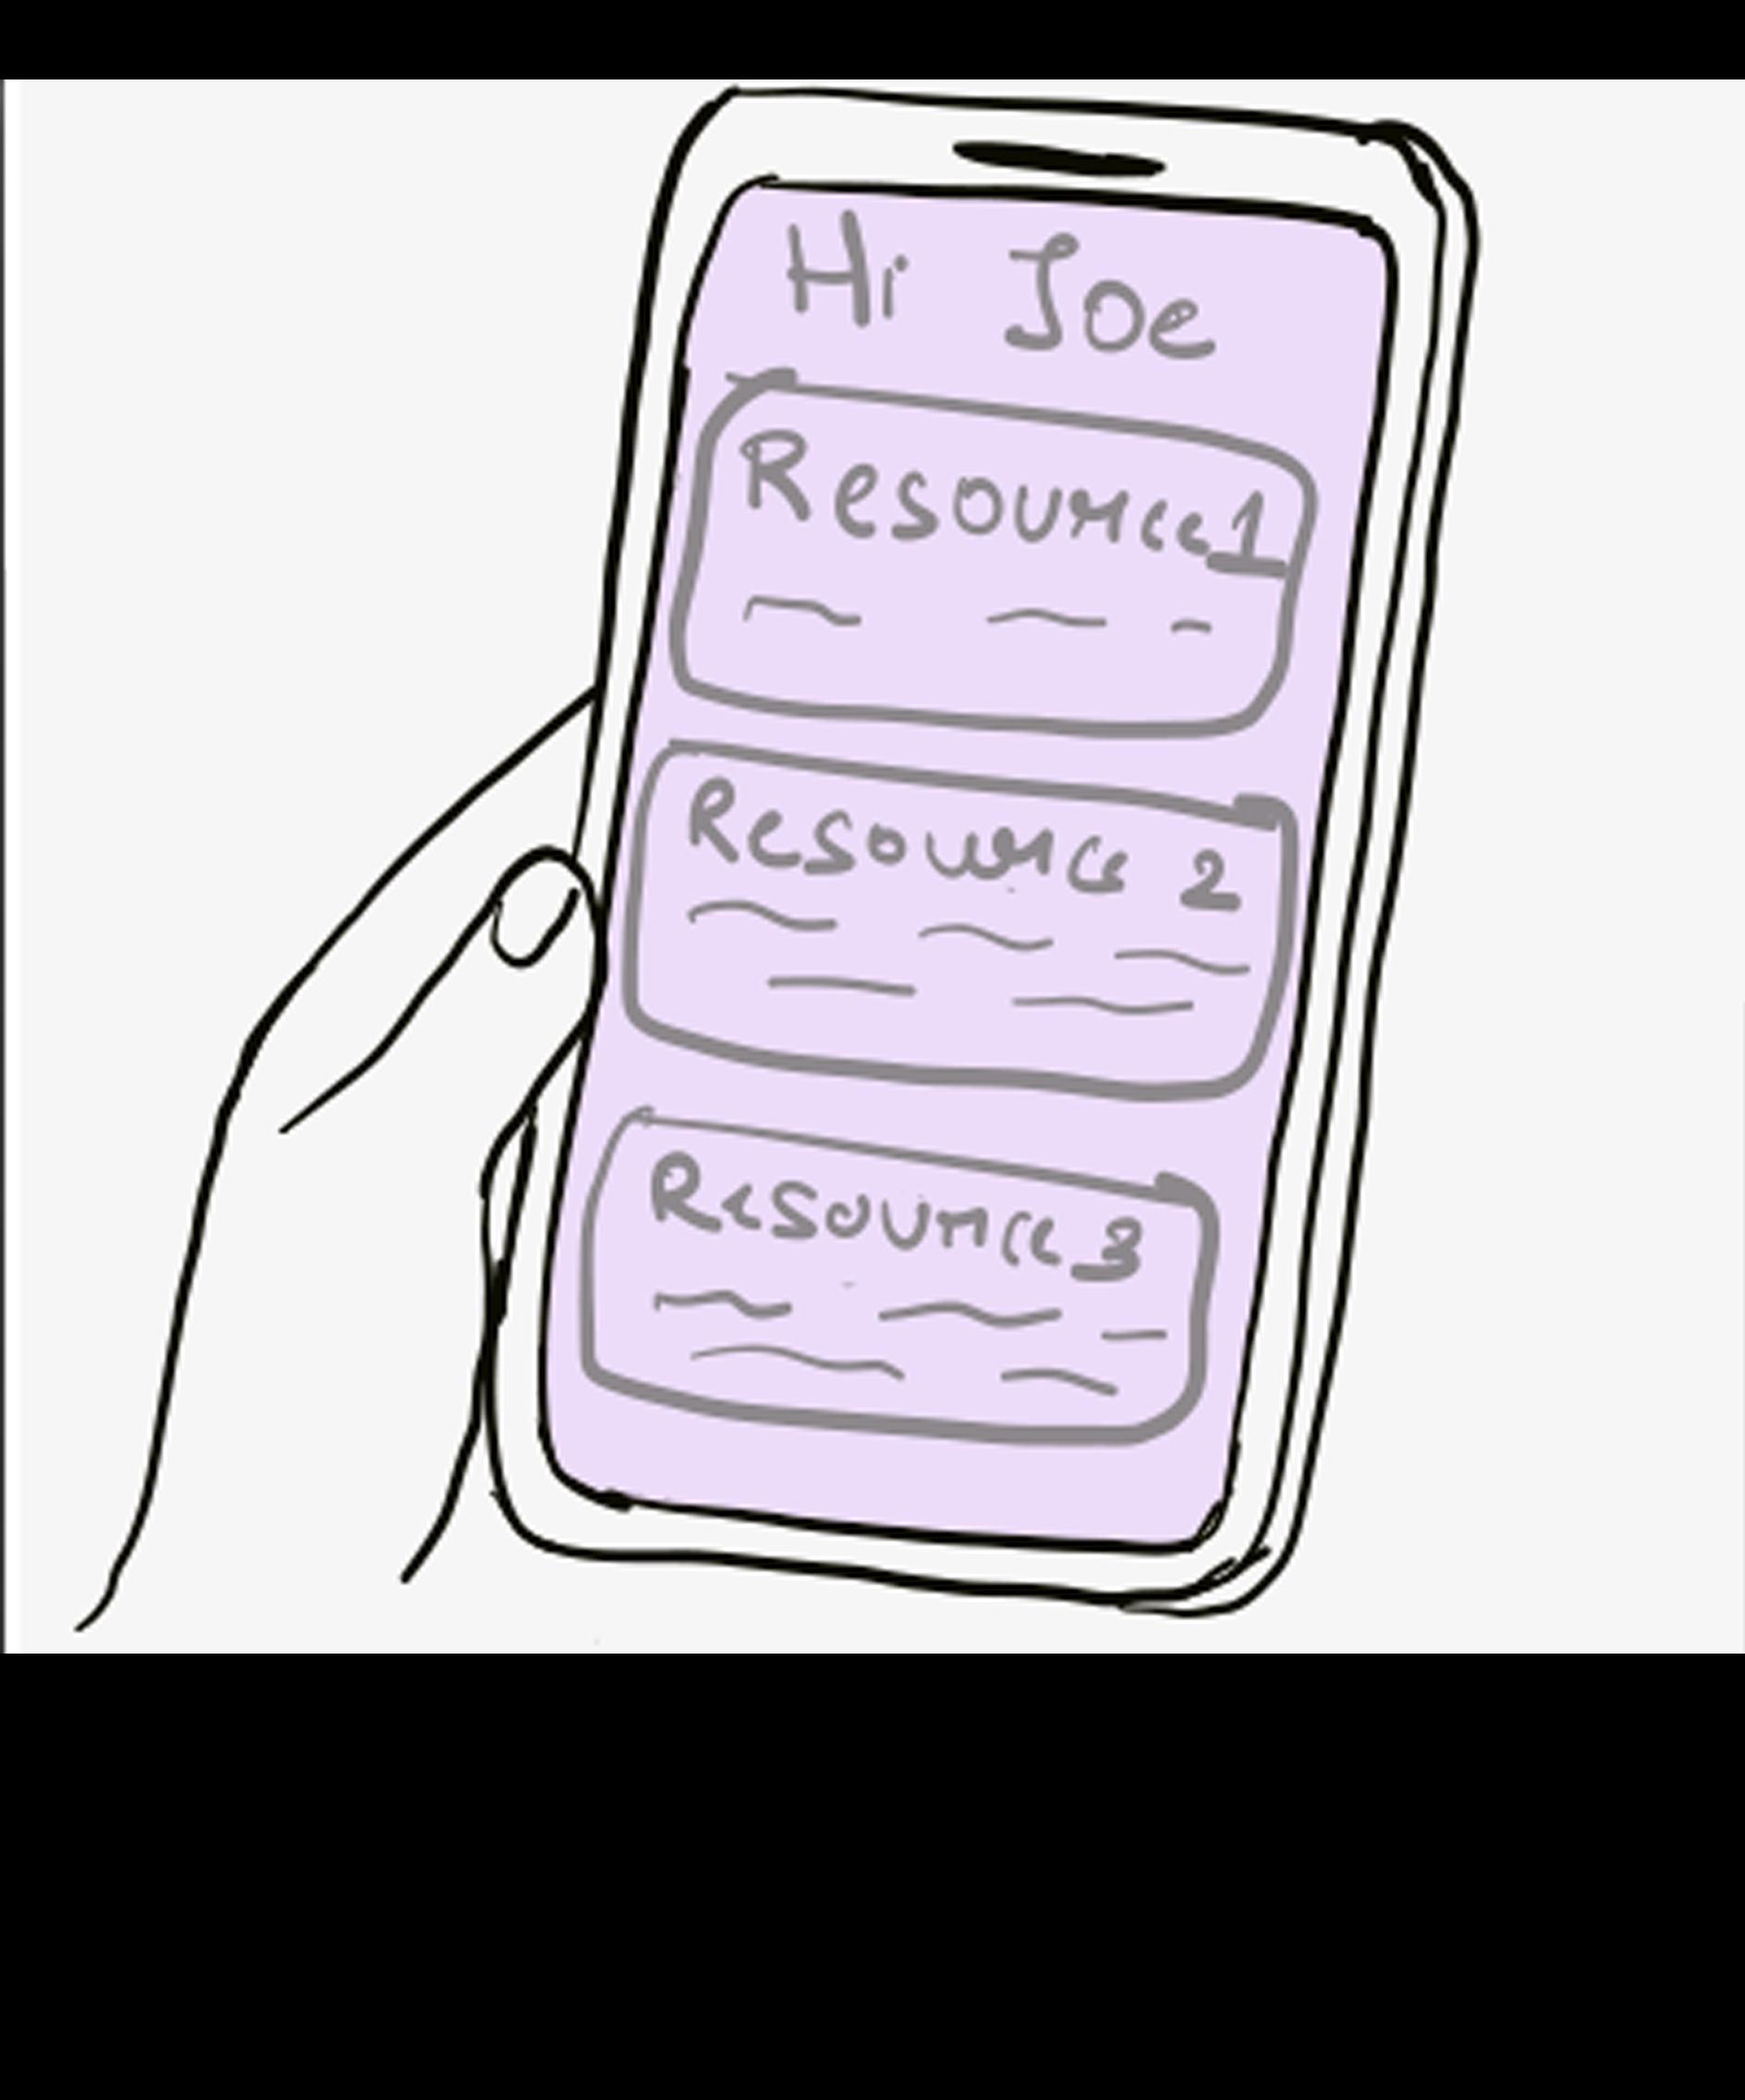 Hi Joe
Resource 1
Resource 2
Resource 3